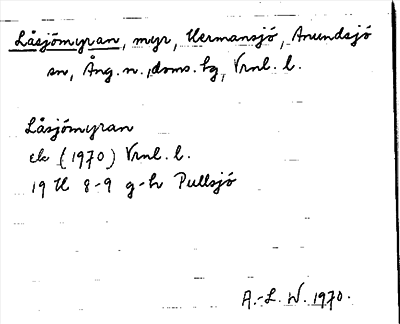 Låsjömyran, myr, Hermansjö, Anundsjö
sn, Ång. n., doms. hg, Vrnl. l.
Låsjömyran
ek (1970) Vrnl. l.
19 H 8-9 g-h Pullsjö
A.-L. W. 1970.